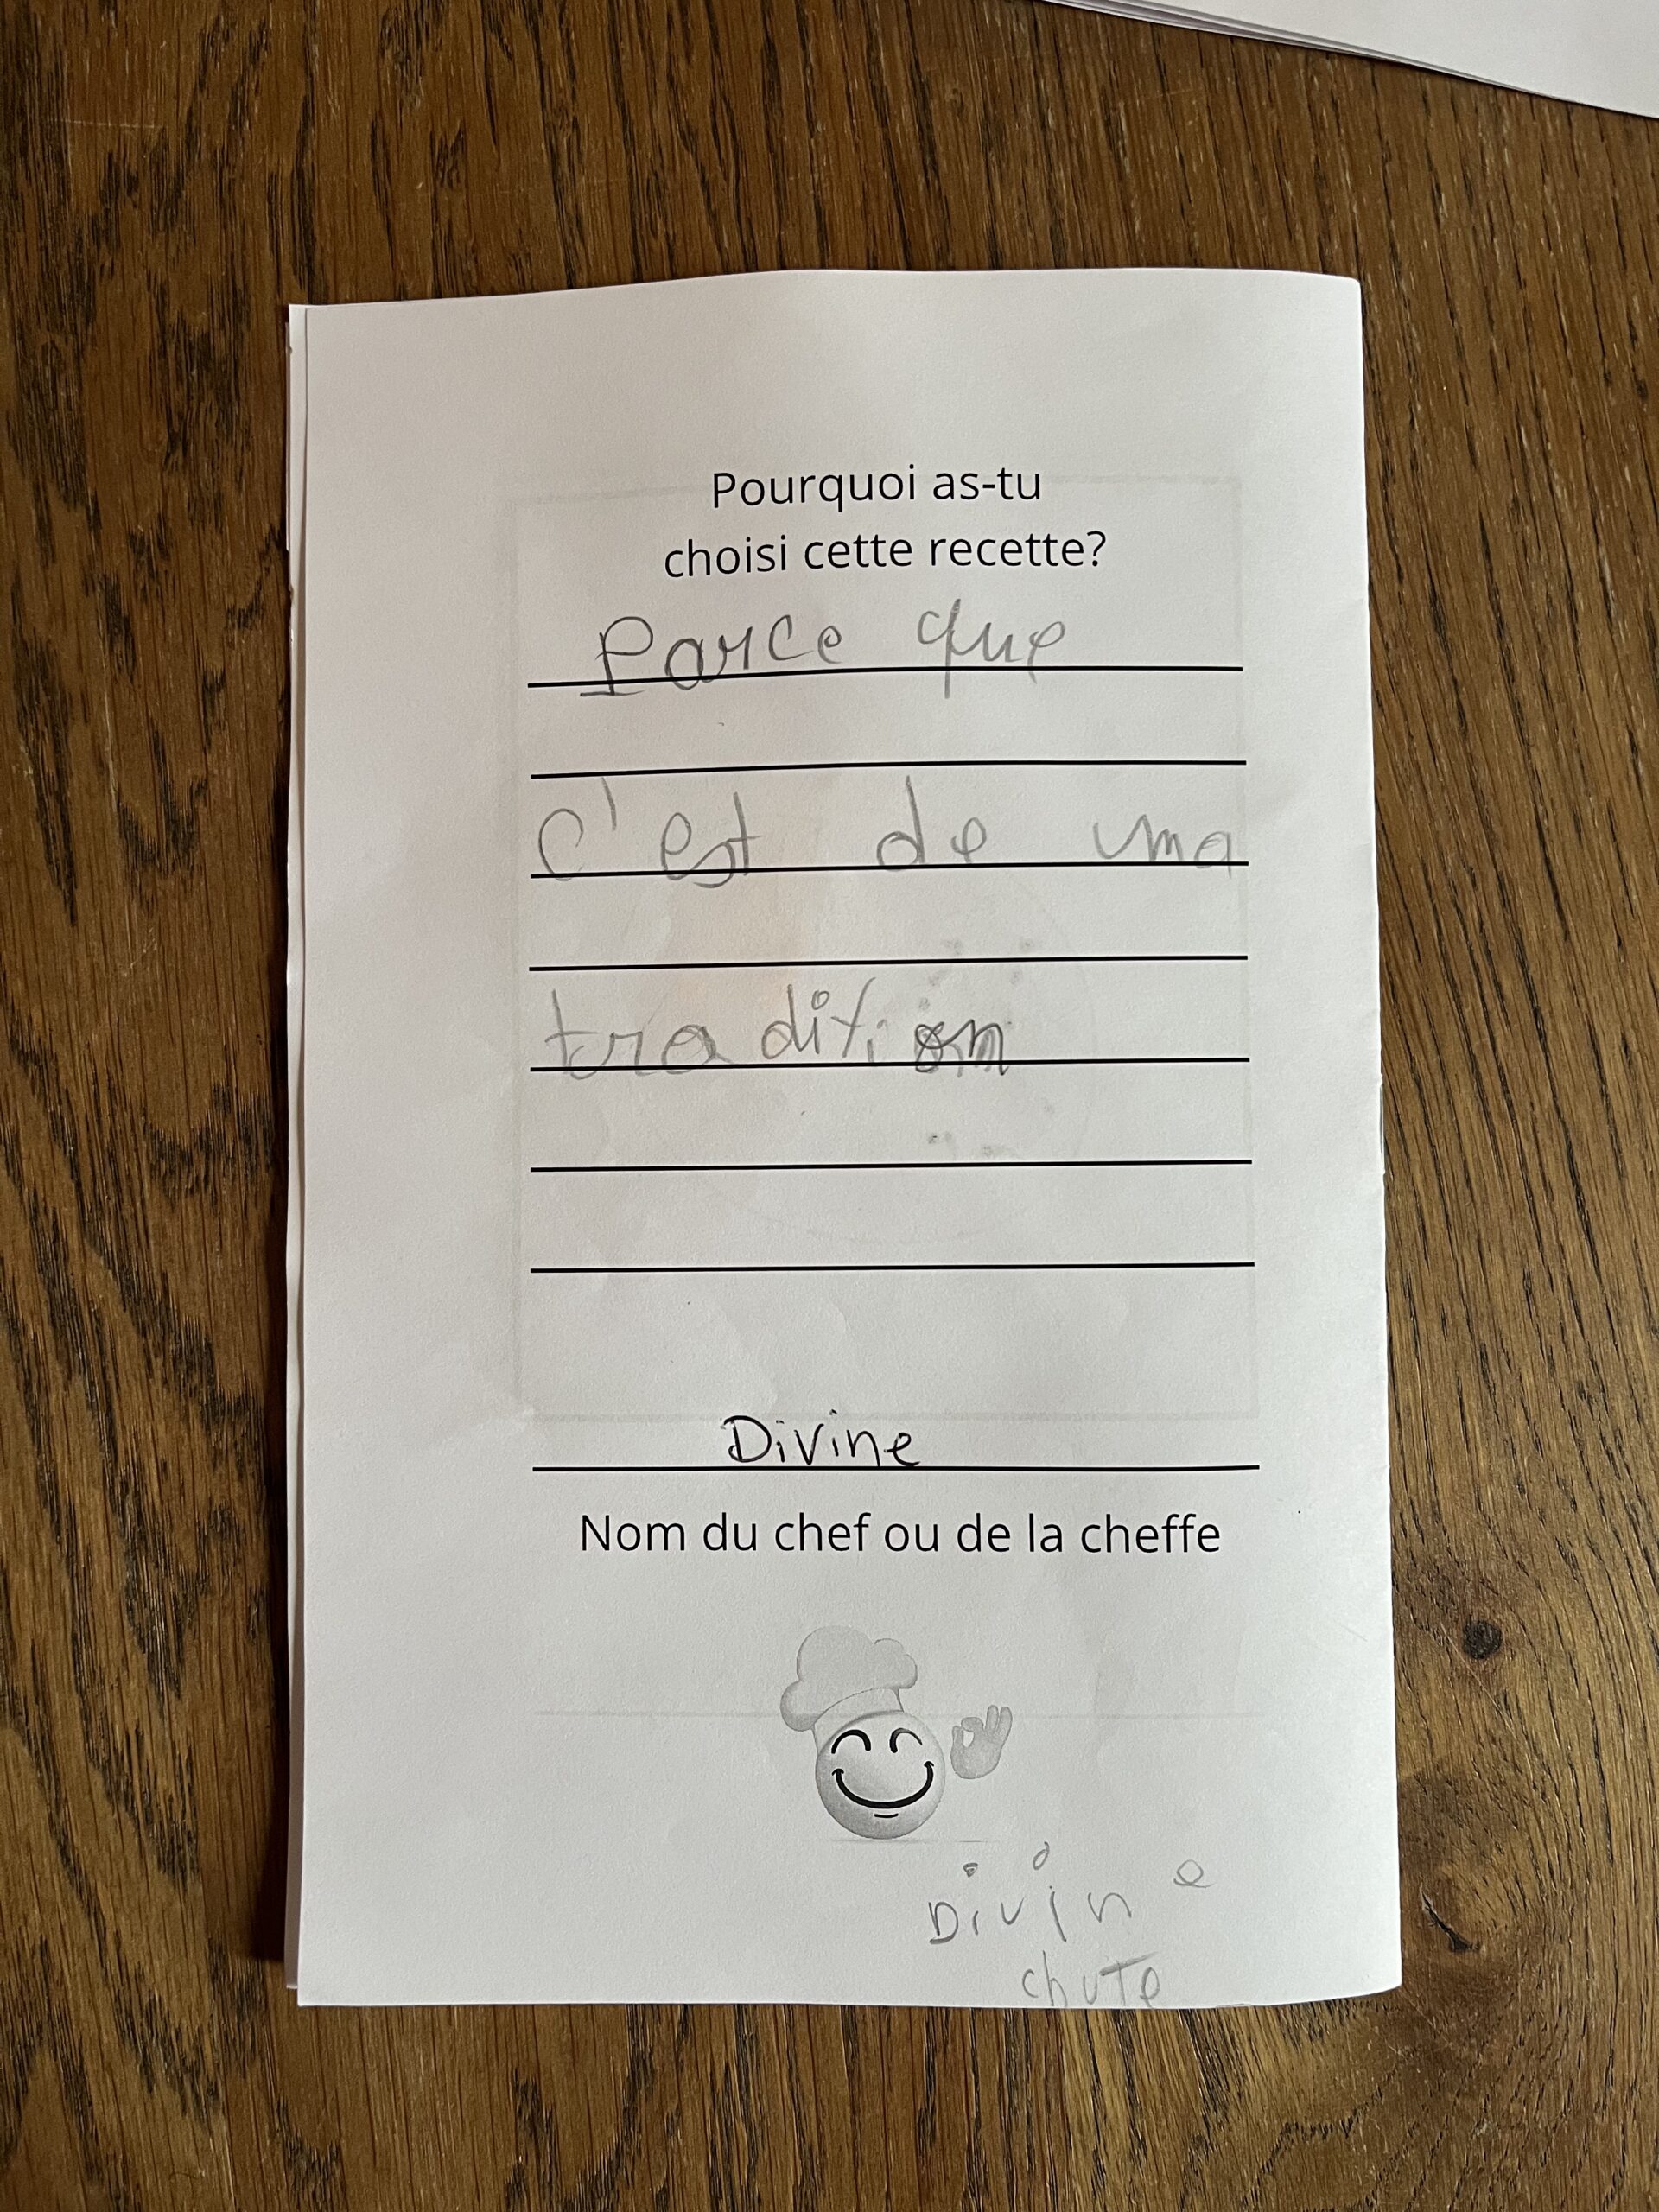 Pourquoi as-tu
choisi cette recette?
Parce que
c'est de ma
tradition
Divine
Nom du chef ou de la cheffe
Divine
chute